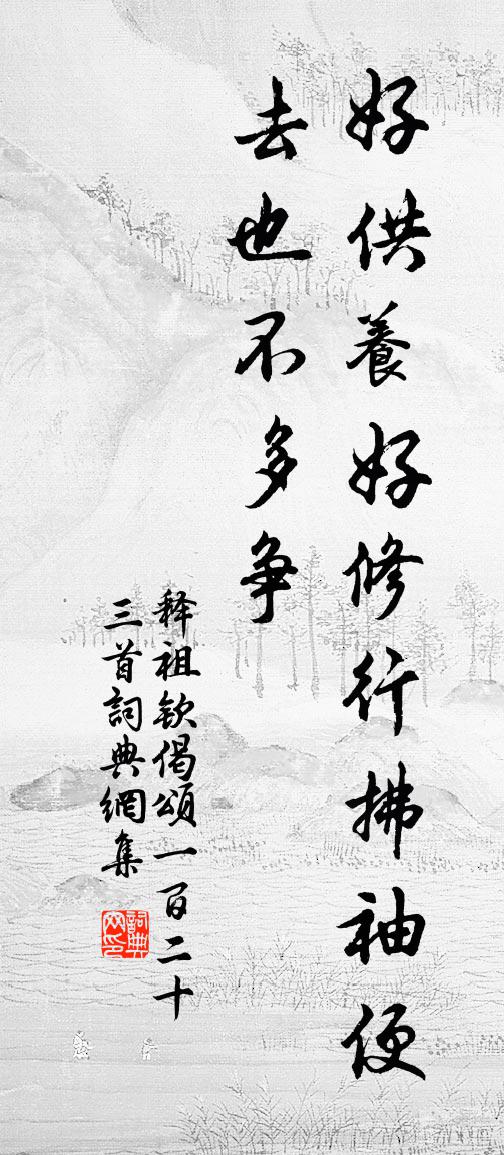 好供養好修行拂袖便
去也不多争
释祖钦偈頌一百二十
三首詞典網集
詞典网印